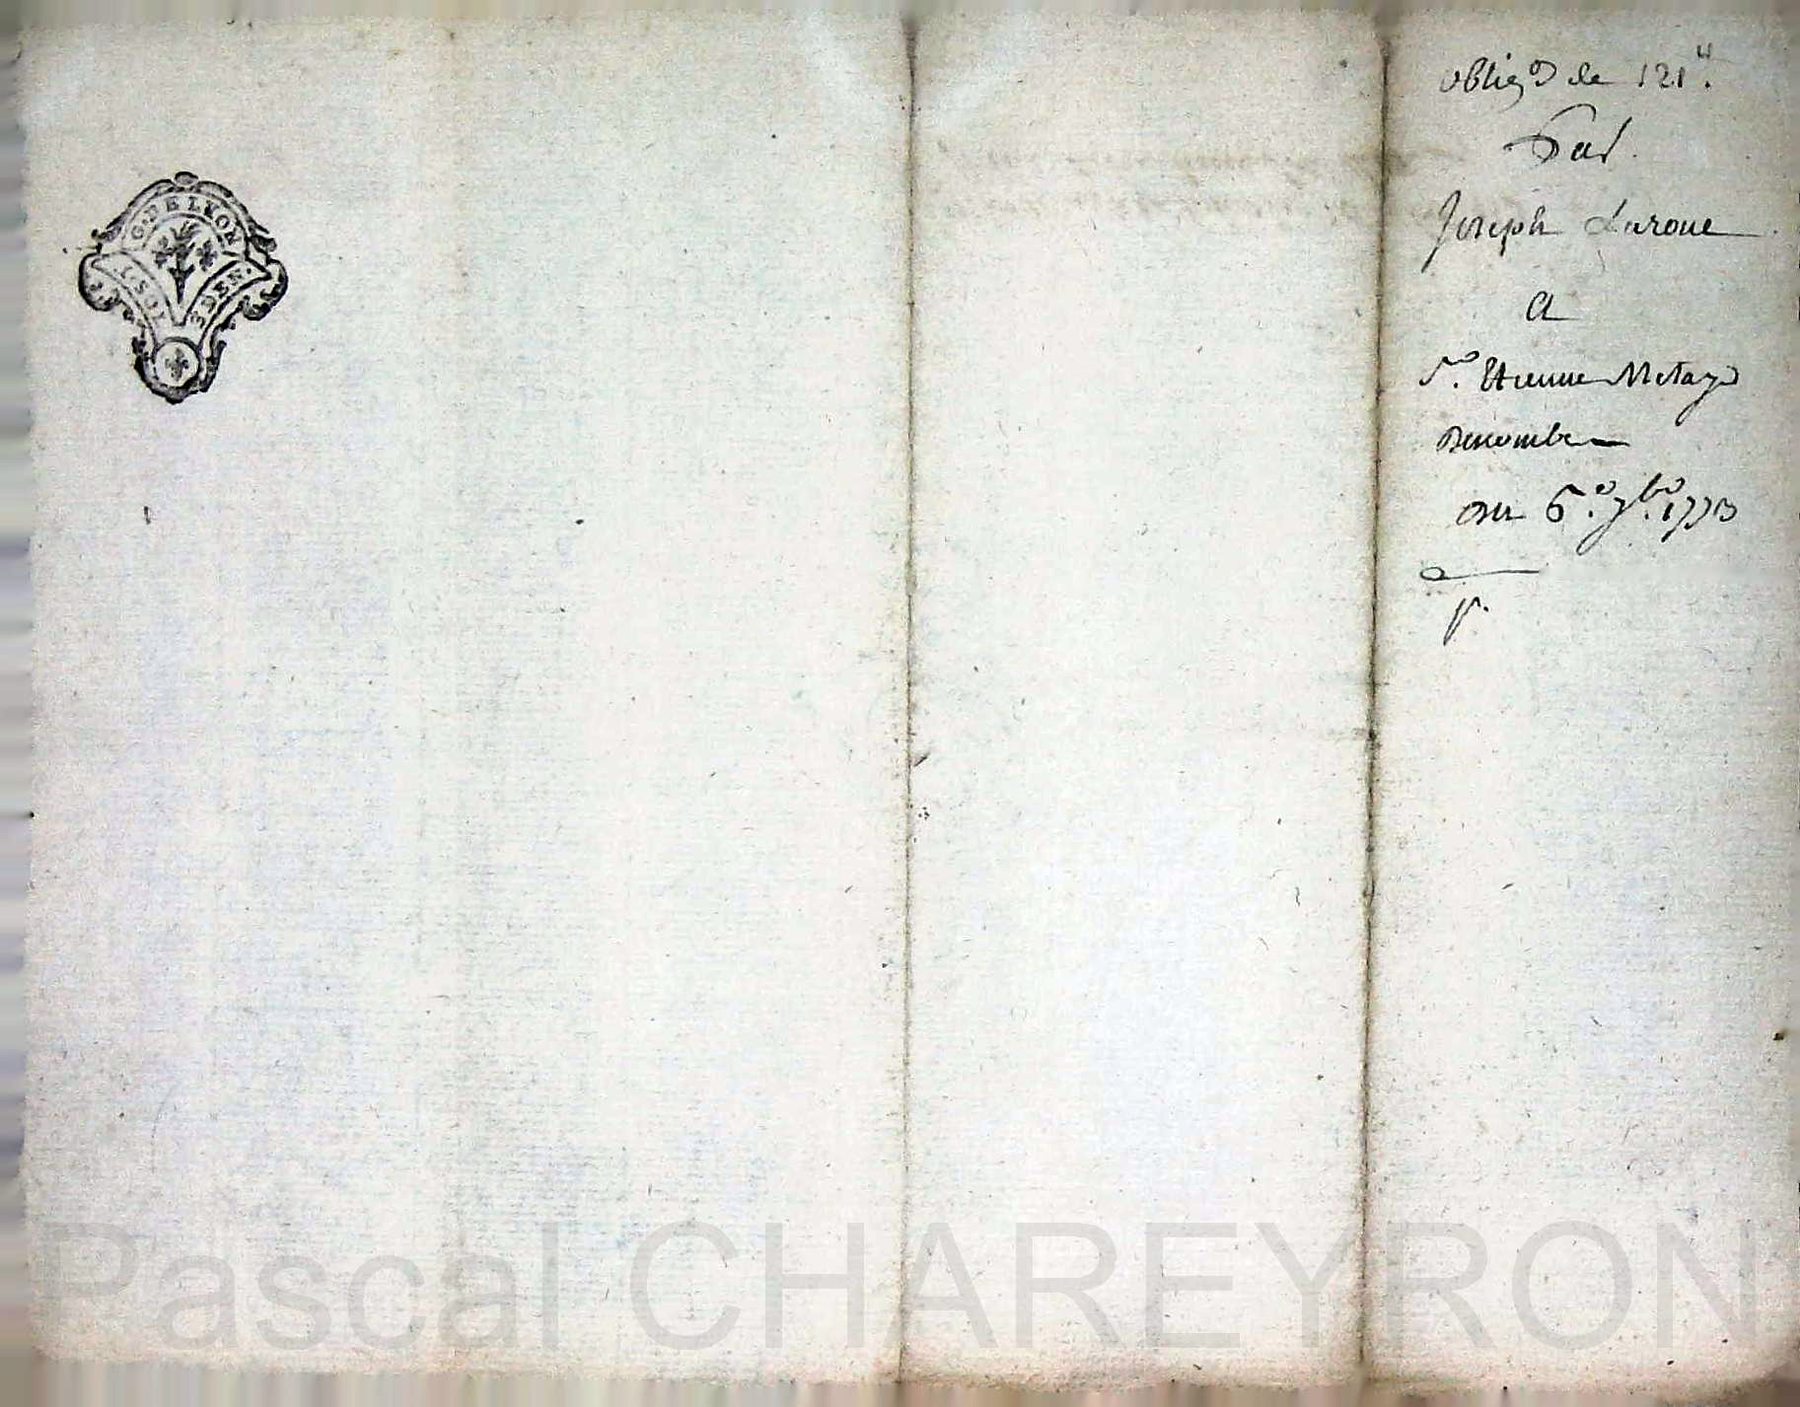 G. DE LYON
1. SOL 3 DEN.
oblig^on de 121^ll.
Par
Joseph Laroue
A
S^r. Etienne Metay^r
du 6^e. 7^bre. 1773
Pascal CHAREYRON